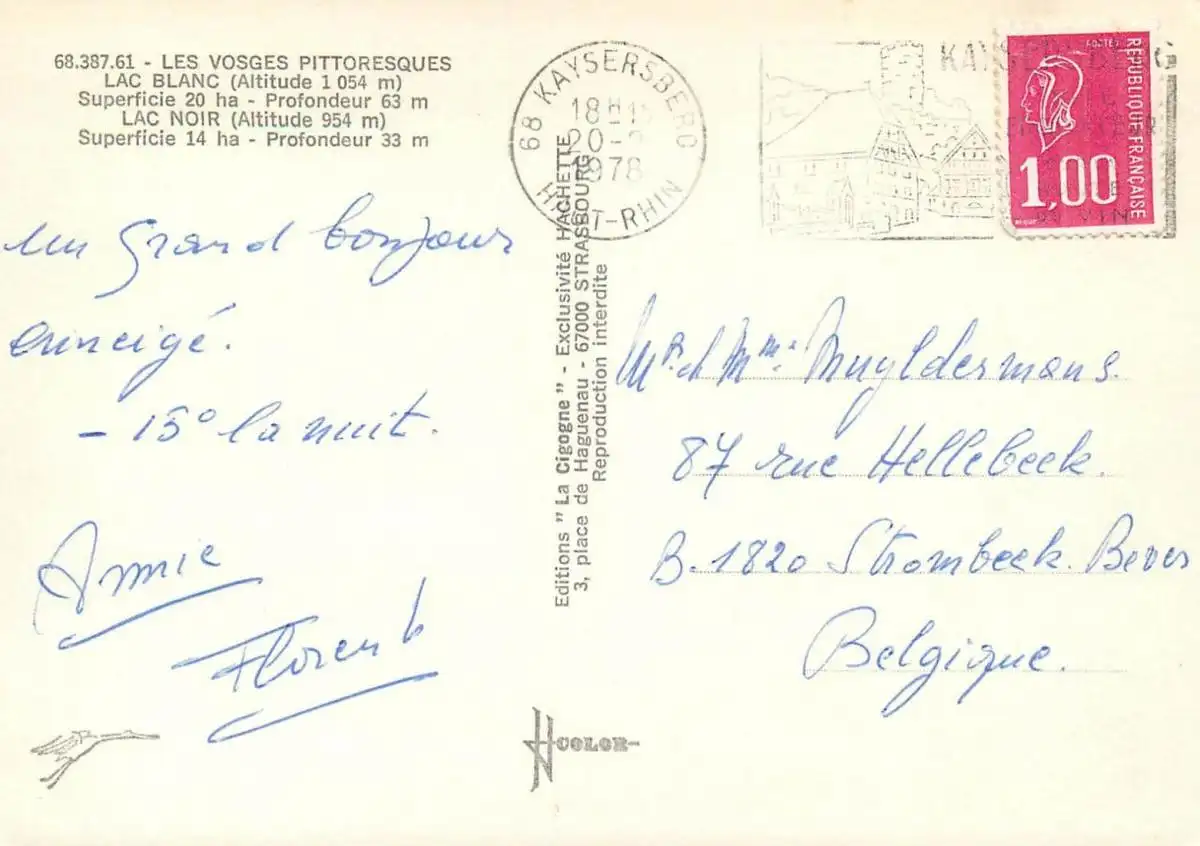 68.387.61 - LES VOSGES PITTORESQUES
LAC BLANC (Altitude 1 054 m)
Superficie 20 ha - Profondeur 63 m
LAC NOIR (Altitude 954 m)
Superficie 14 ha - Profondeur 33 m
un grand bonjour
enneigé.
- 15° la nuit.
Annie
Florent
68 KAYSERSBERG
18H15
20-
1978
HAUT-RHIN
RÉPUBLIQUE FRANÇAISE
1,00
VIN
Editions " La Cigogne " - Exclusivité HACHETTE
3, place de Haguenau - 67000 STRASBOURG
Reproduction interdite
COLOR
Mr et Mme Muyldermans.
87 rue Hellebeek.
B. 1820 Strombeek. Bever
Belgique.